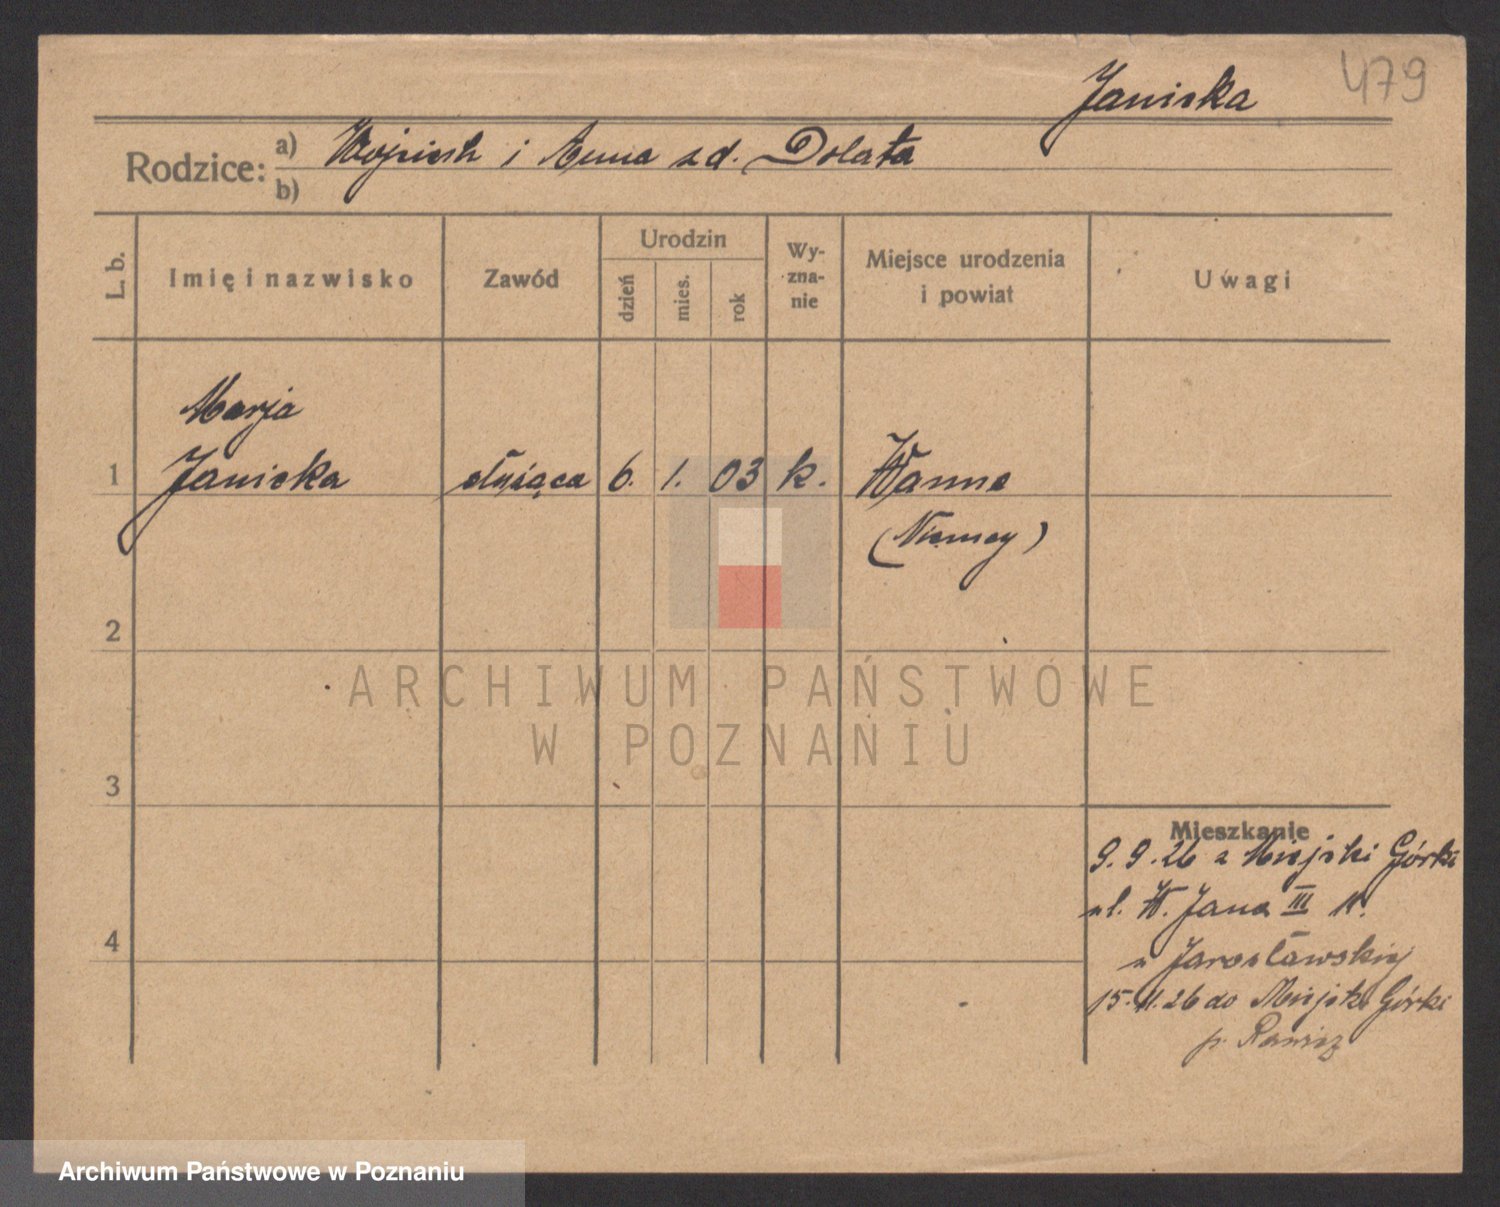 479
Janicka
Rodzice: a) Wojciech i Anna zd. Dolata
b)
L. b.
Imię i nazwisko
Zawód
Urodzin
dzień
mies.
rok
Wy-
zna-
nie
Miejsce urodzenia
i powiat
Uwagi
Marja
1 Janicka służąca 6. 1. 03 k. Wanne
(Niemcy)
2
3
4
ARCHIWUM PAŃSTWOWE
W POZNANIU
Mieszkanie
9.9.26 z Miejski Górki
ul. W. Jana III
u Jarosławskiej
15.11.26 do Miejsk. Górki
p. Rawicz
Archiwum Państwowe w Poznaniu